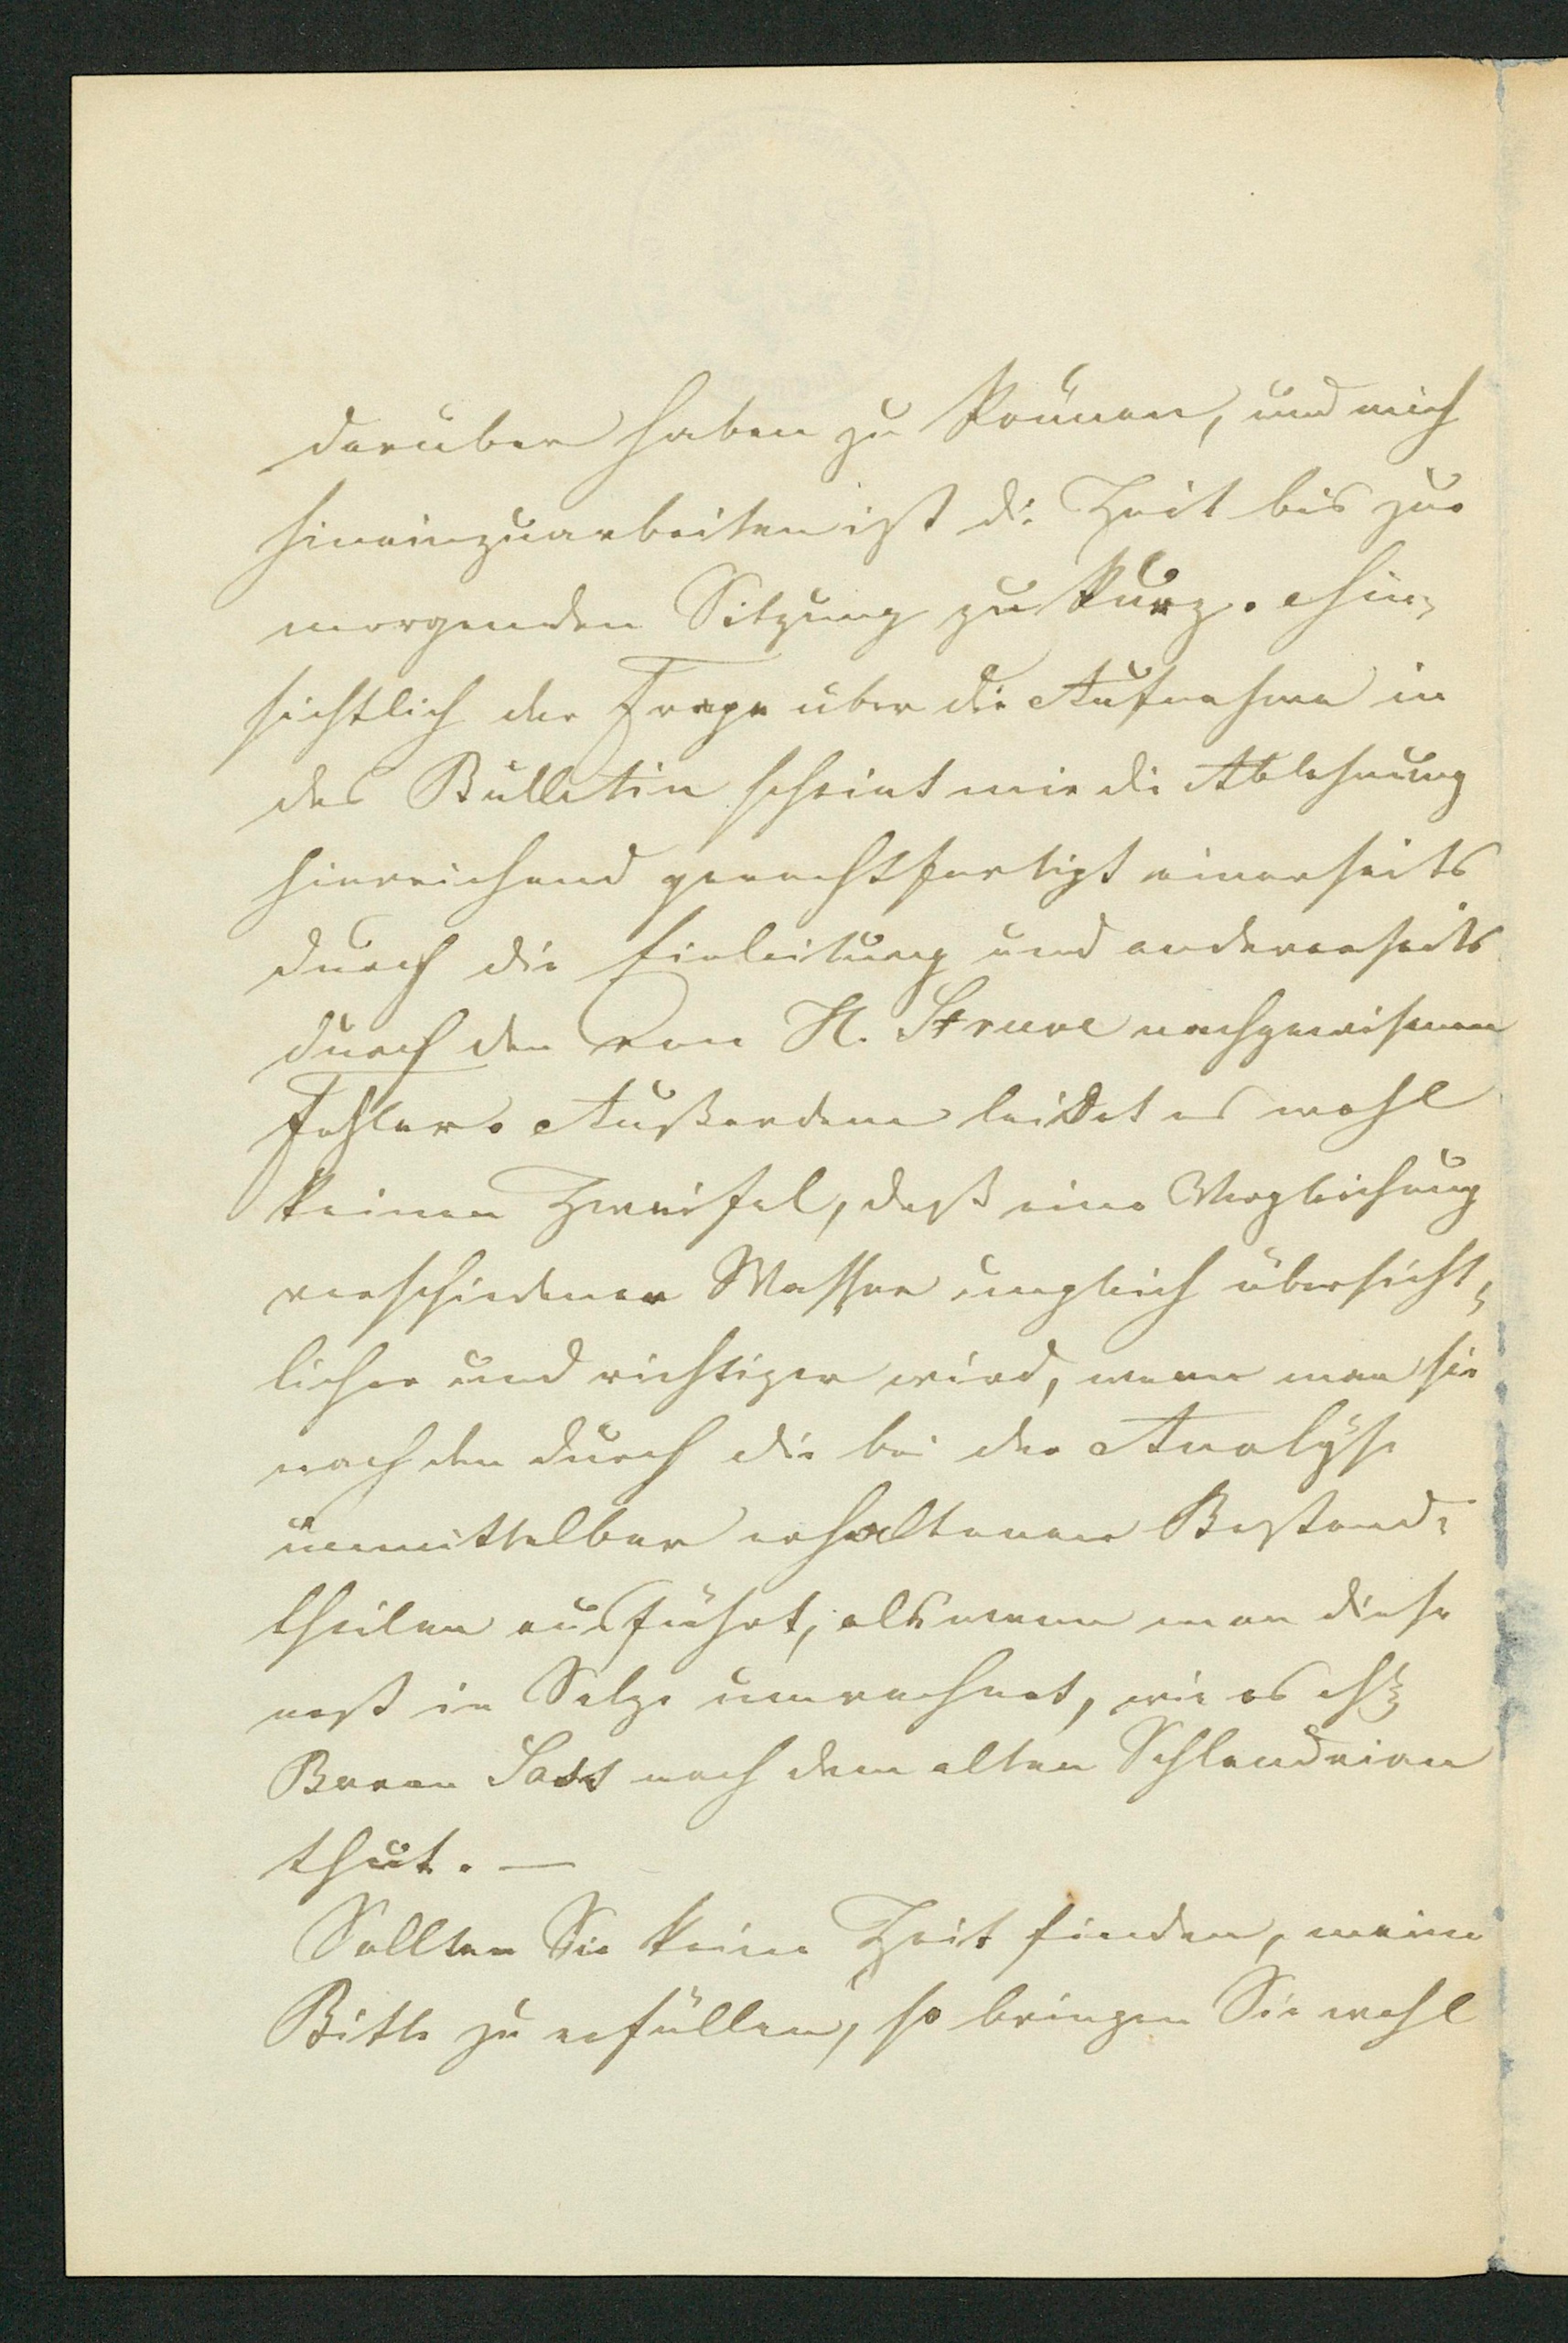 darüber haben zu können, und mich
hineinzuarbeiten ist die Zeit bis zur
morgenden Sitzung zu kurz. Hin-
sichtlich der Frage über die Aufnahme in
das Bulletin scheint mir die Ablehnung
hinreichend gerechtfertigt einerseits
durch die Einleitung und andererseits
durch den von H. Struve nachgewiesenen
Fehler. Außerdem leidet es wohl
keinen Zweifel, daß eine Vergleichung
verschiedener Wasser ungleich übersicht-
licher und richtiger wird, wenn man sie
nach den durch die bei der Analyse
unmittelbar erhaltenen Bestand-
theilen ausführt, als wenn man diese
erst in Salze umrechnet, wie es
Baron Sass nach dem alten Schlendrian
thut. —
Sollten Sie keine Zeit finden, meine
Bitte zu erfüllen, so bringen Sie wohl